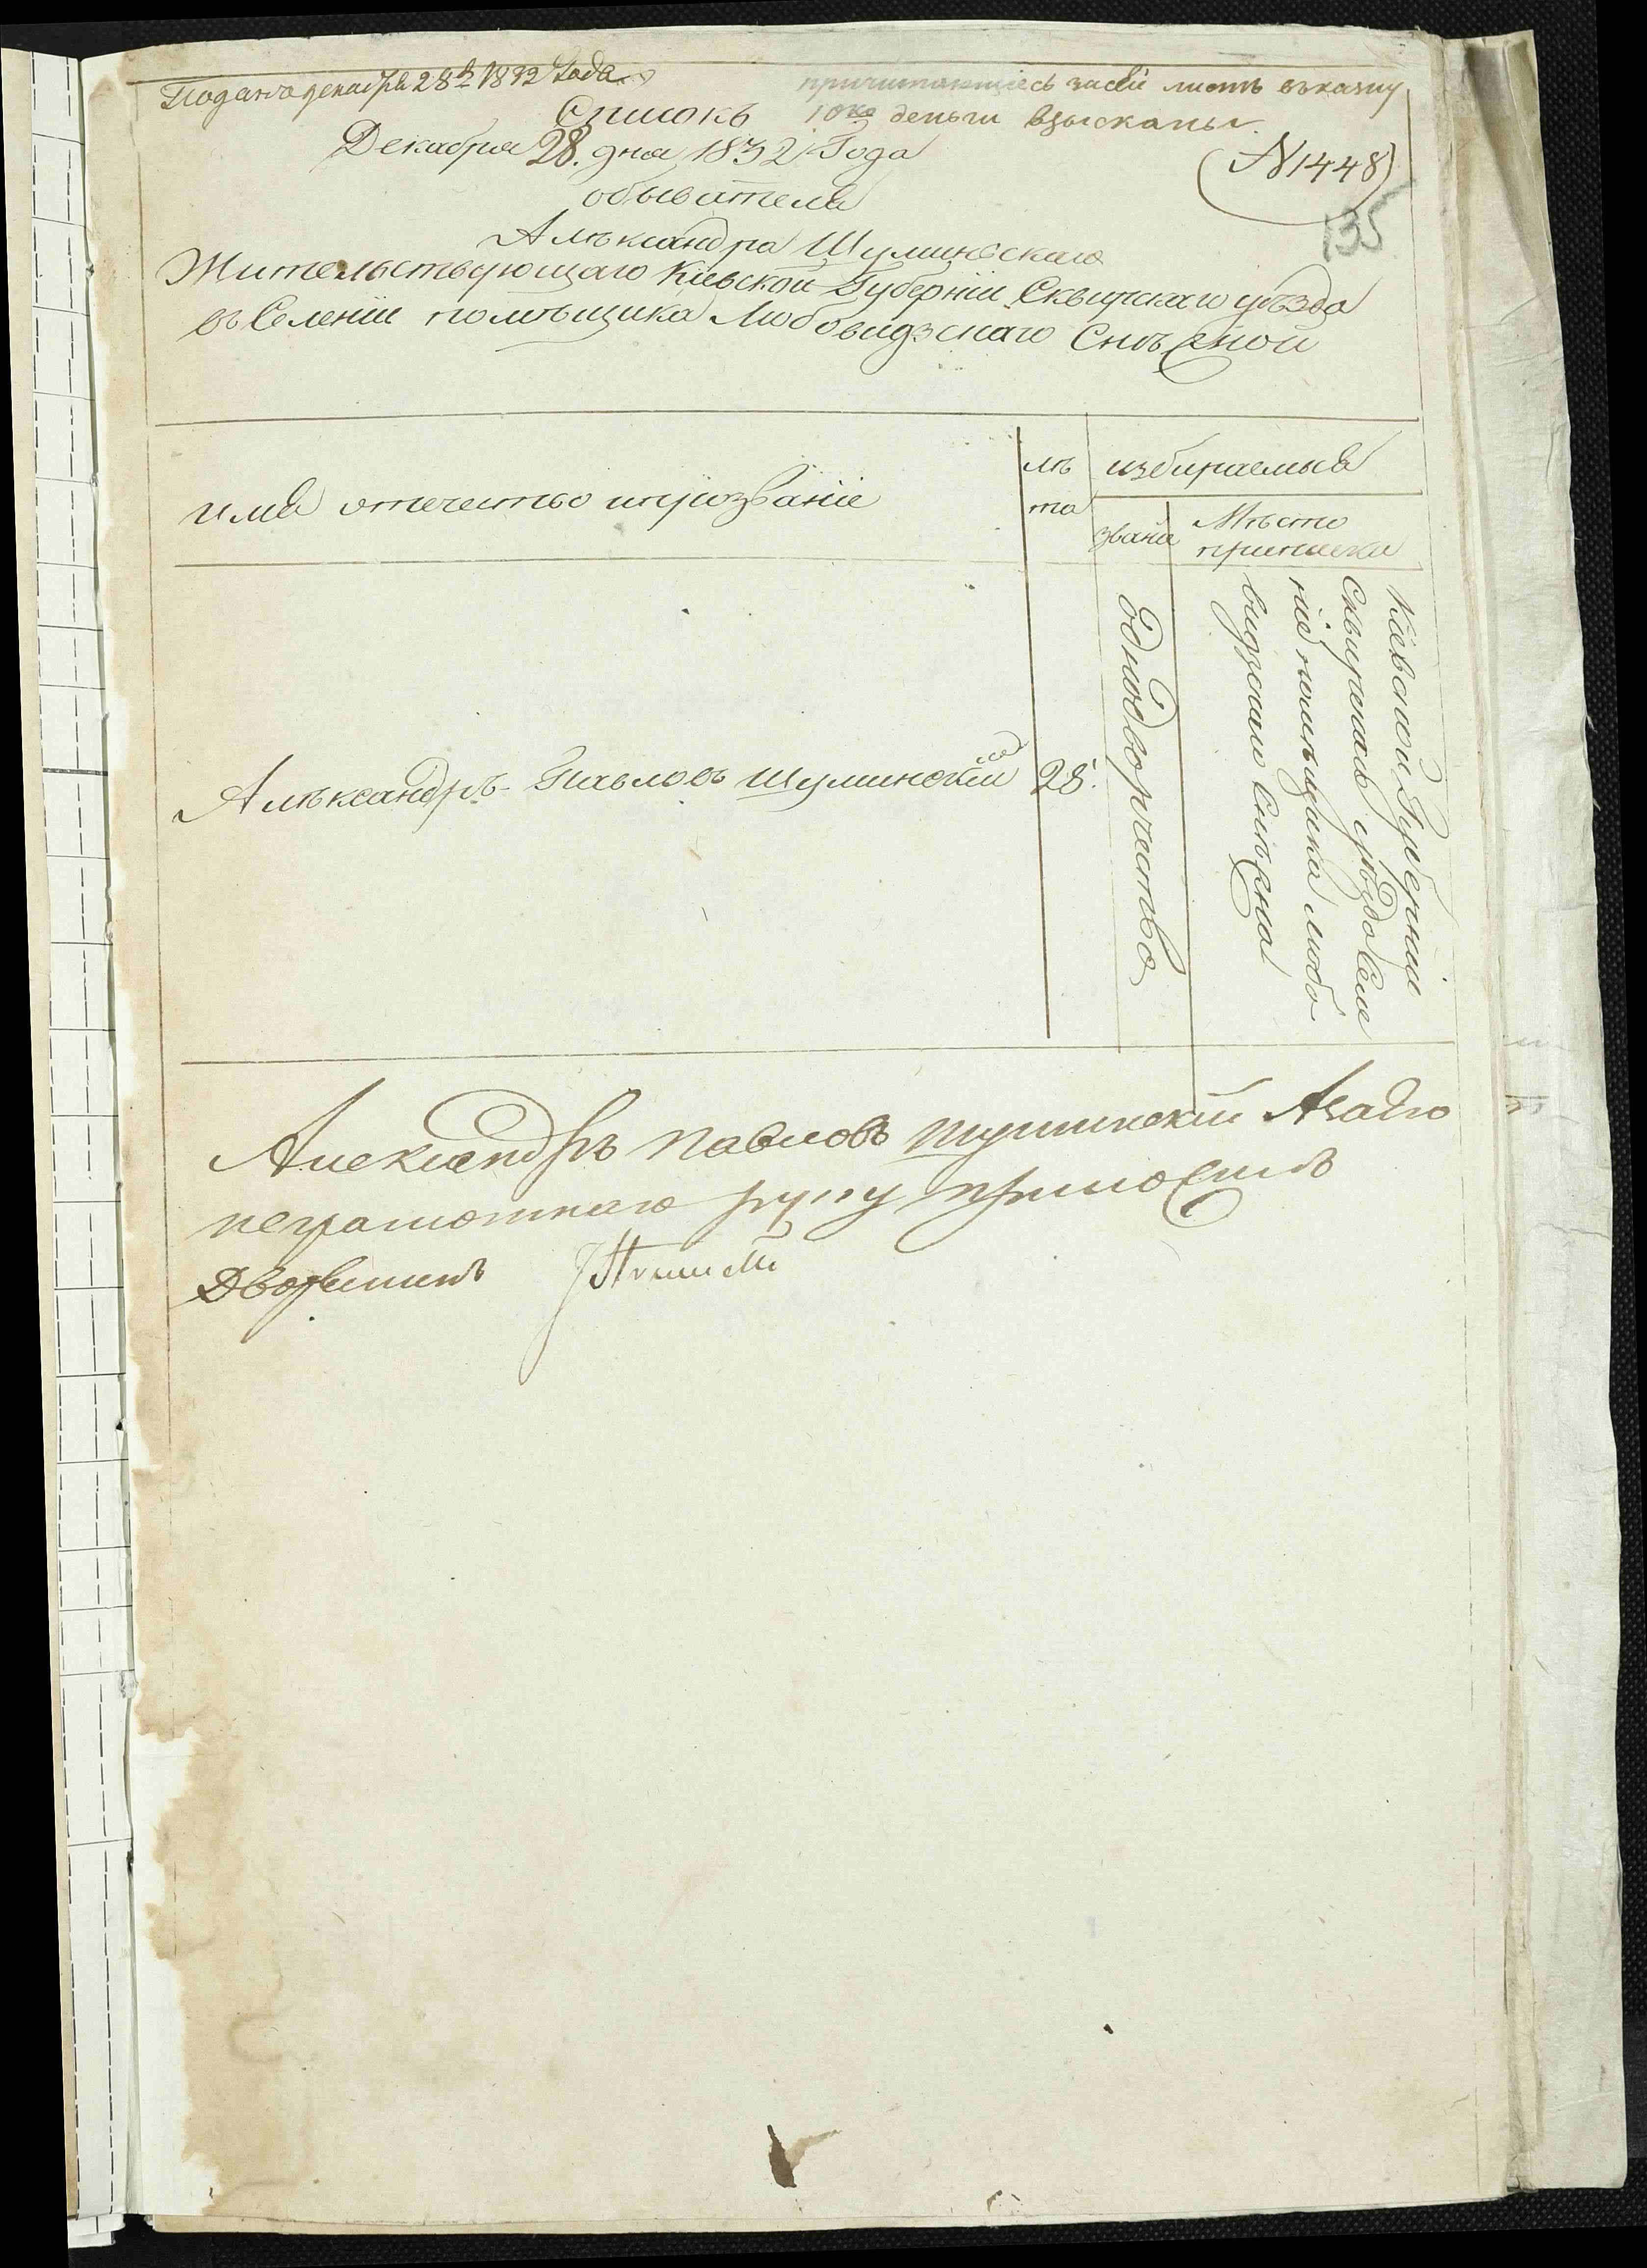 Подано декабря 28го 1832 Года
причитающiесь за сей листъ въ казну
10 ко деньги взысканы
Списокъ
Декабря 28. дня 1832 Года
(N 1448)
135
обывателя
Алѣксандра Шуминскаго
Жительствующаго Кiевской Губернiи Сквирскаго уѣзда
въ Селенiи помѣщика Любовидзскаго Снѣжной
имя отечество и прозванiе
лѣ
та
избираемыя
званiе
Мѣсто
приписки
Алѣксандръ Павловъ Шуминскiй
28.
однодворчество
Кiевской Губернiи
Сквирскаго уѣзда Селе
нiе помѣщика Любо
видзскаго Снѣжна
Александръ Павловъ Шуминскiй А за его
неграмотнаго руку приложилъ
Дворянинъ